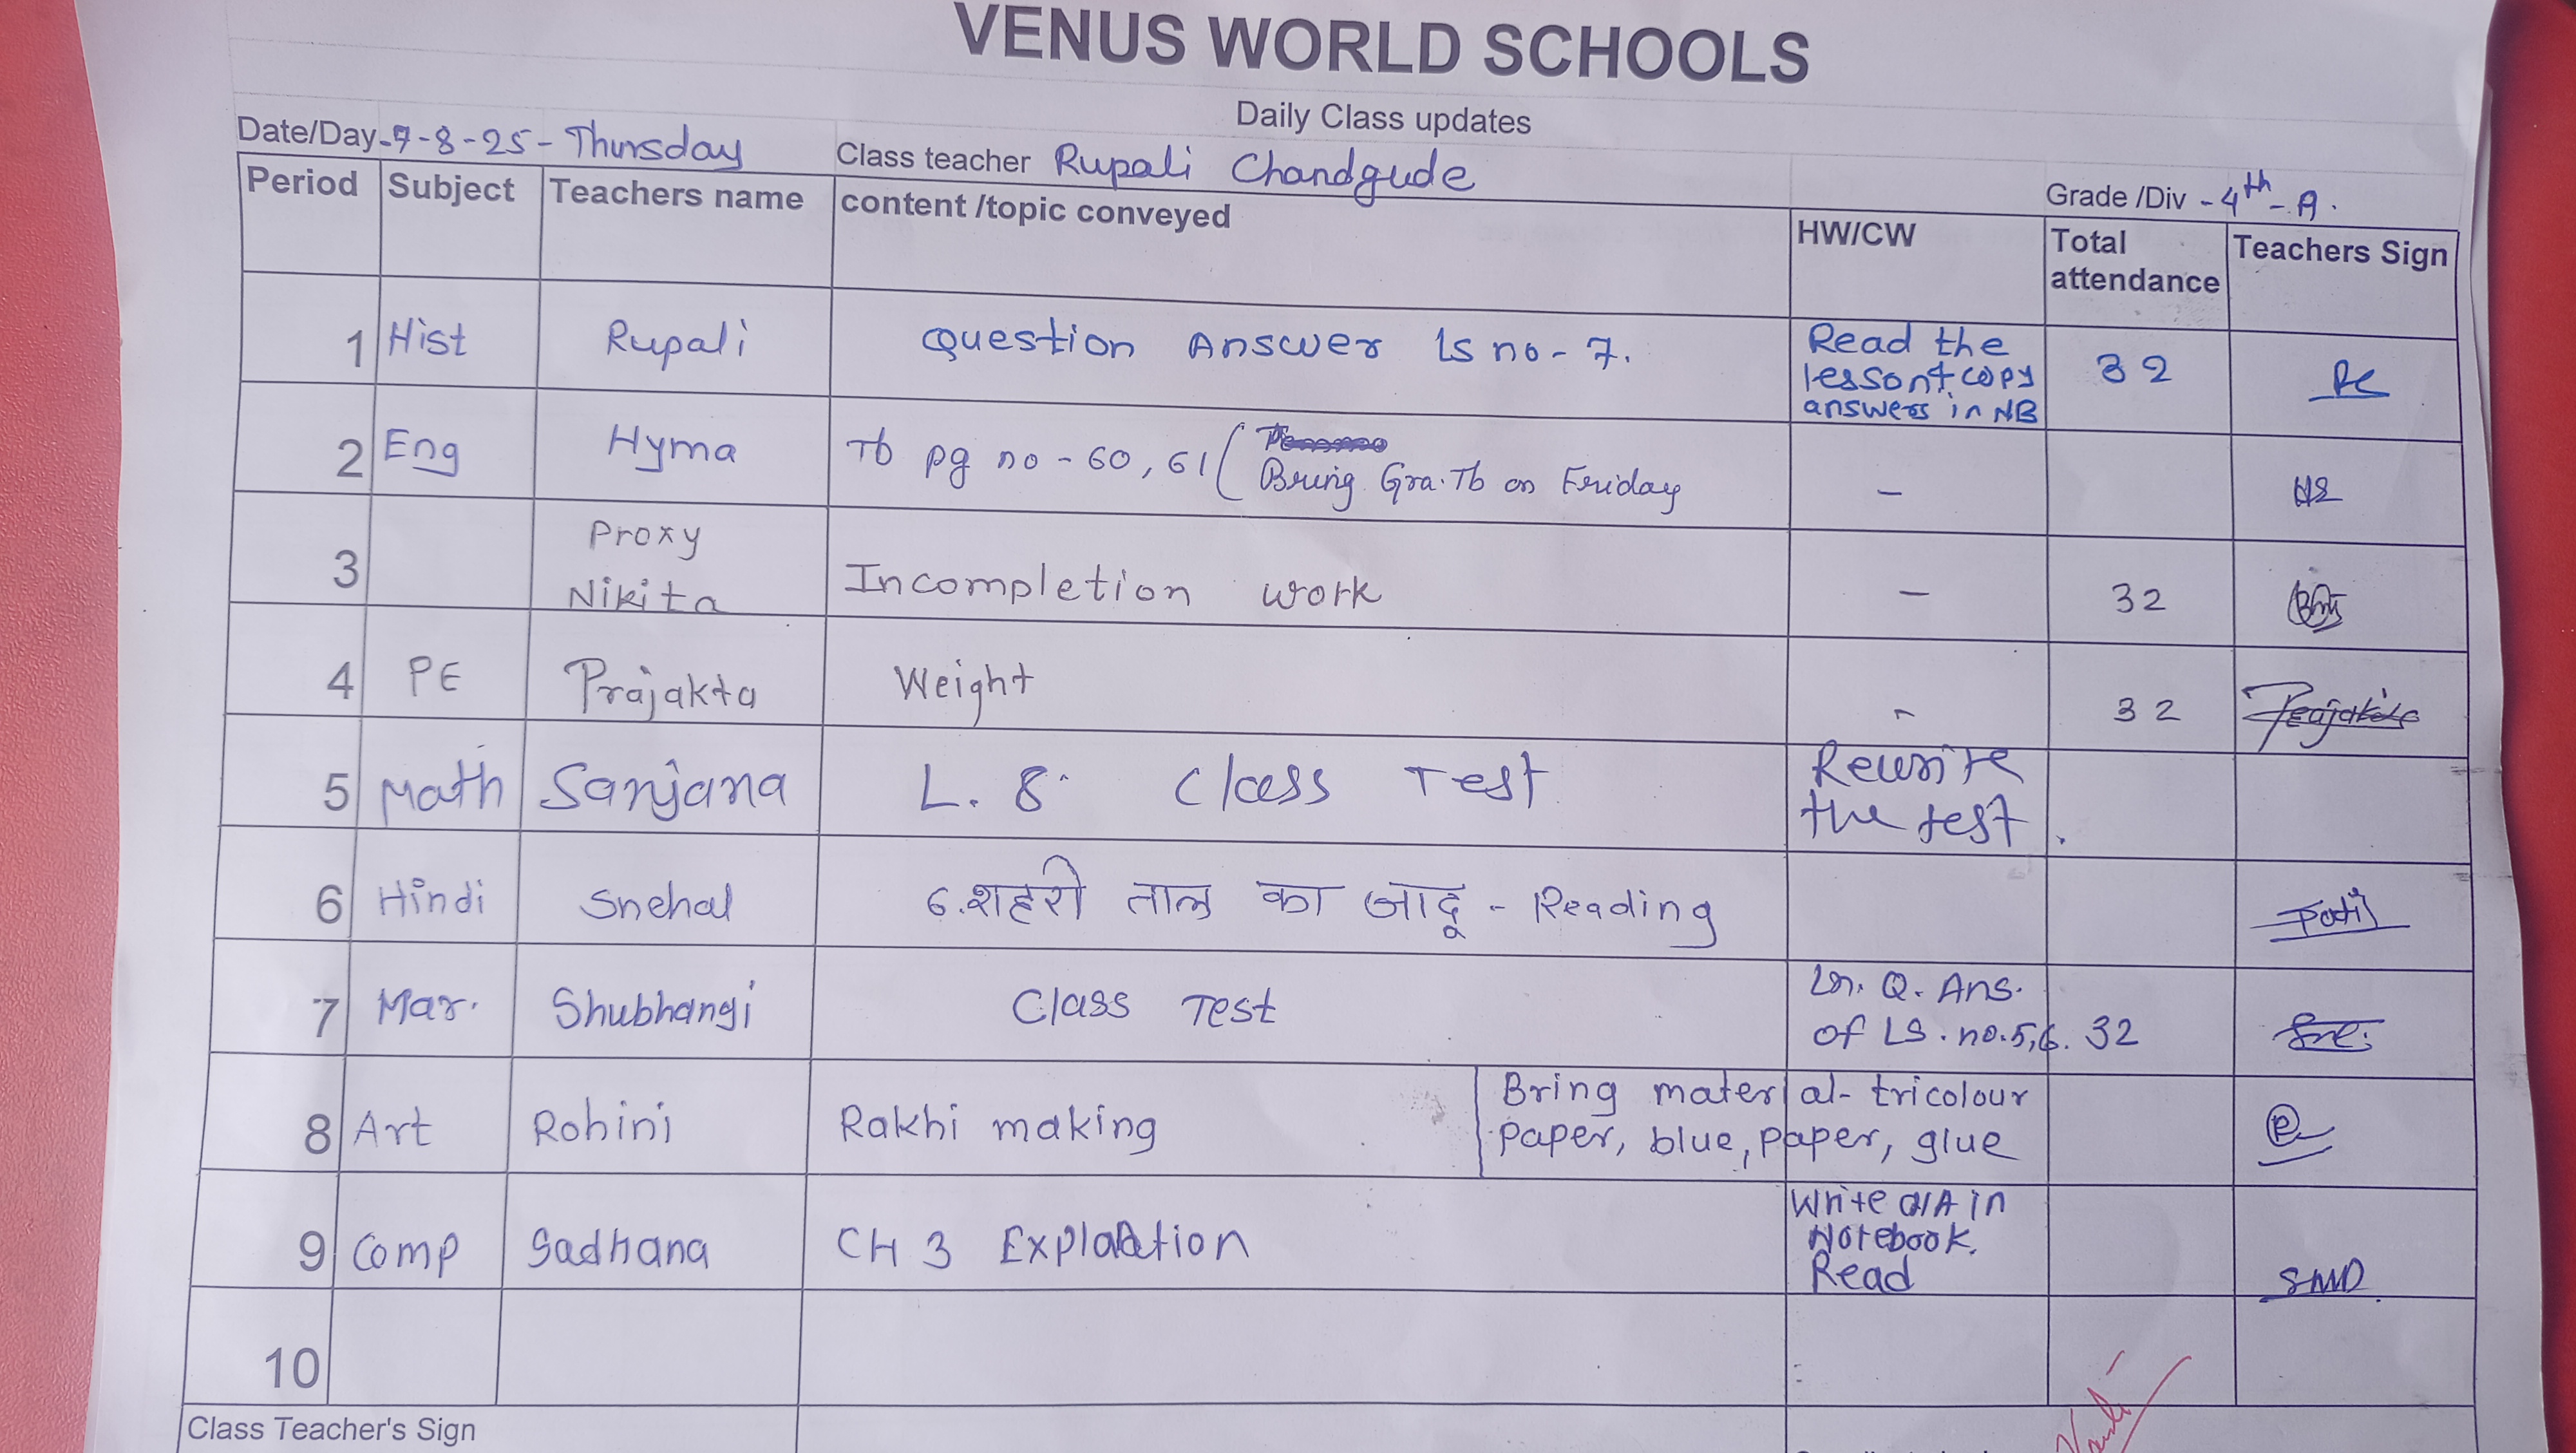 VENUS WORLD SCHOOLS
Daily Class updates
Date/Day-7-8-25-Thursday Class teacher Rupali Chandgude Grade /Div -4th-A.
Period Subject Teachers name content /topic conveyed HW/CW Total attendance Teachers Sign
1 Hist Rupali Question Answer ls no-7. Read the lesson + copy answers in NB 32 RC
2 Eng Hyma Tb pg no-60,61 ( Bring Gra.Tb on Friday - HS
3 Proxy Nikita Incompletion work - 32
4 PE Prajakta Weight - 32 Prajakta
5 Math Sanjana L. 8 Class Test Rewrite the test.
6 Hindi Snehal 6.शहरी ताल का जादू - Reading Patil
7 Mar. Shubhangi Class Test Ln. Q. Ans. of LS. no.5,6. 32
8 Art Rohini Rakhi making Bring material- tricolour paper, blue, paper, glue
9 Comp Sadhana CH 3 Write Q/A in Notebook. Read SMD
10
Class Teacher's Sign